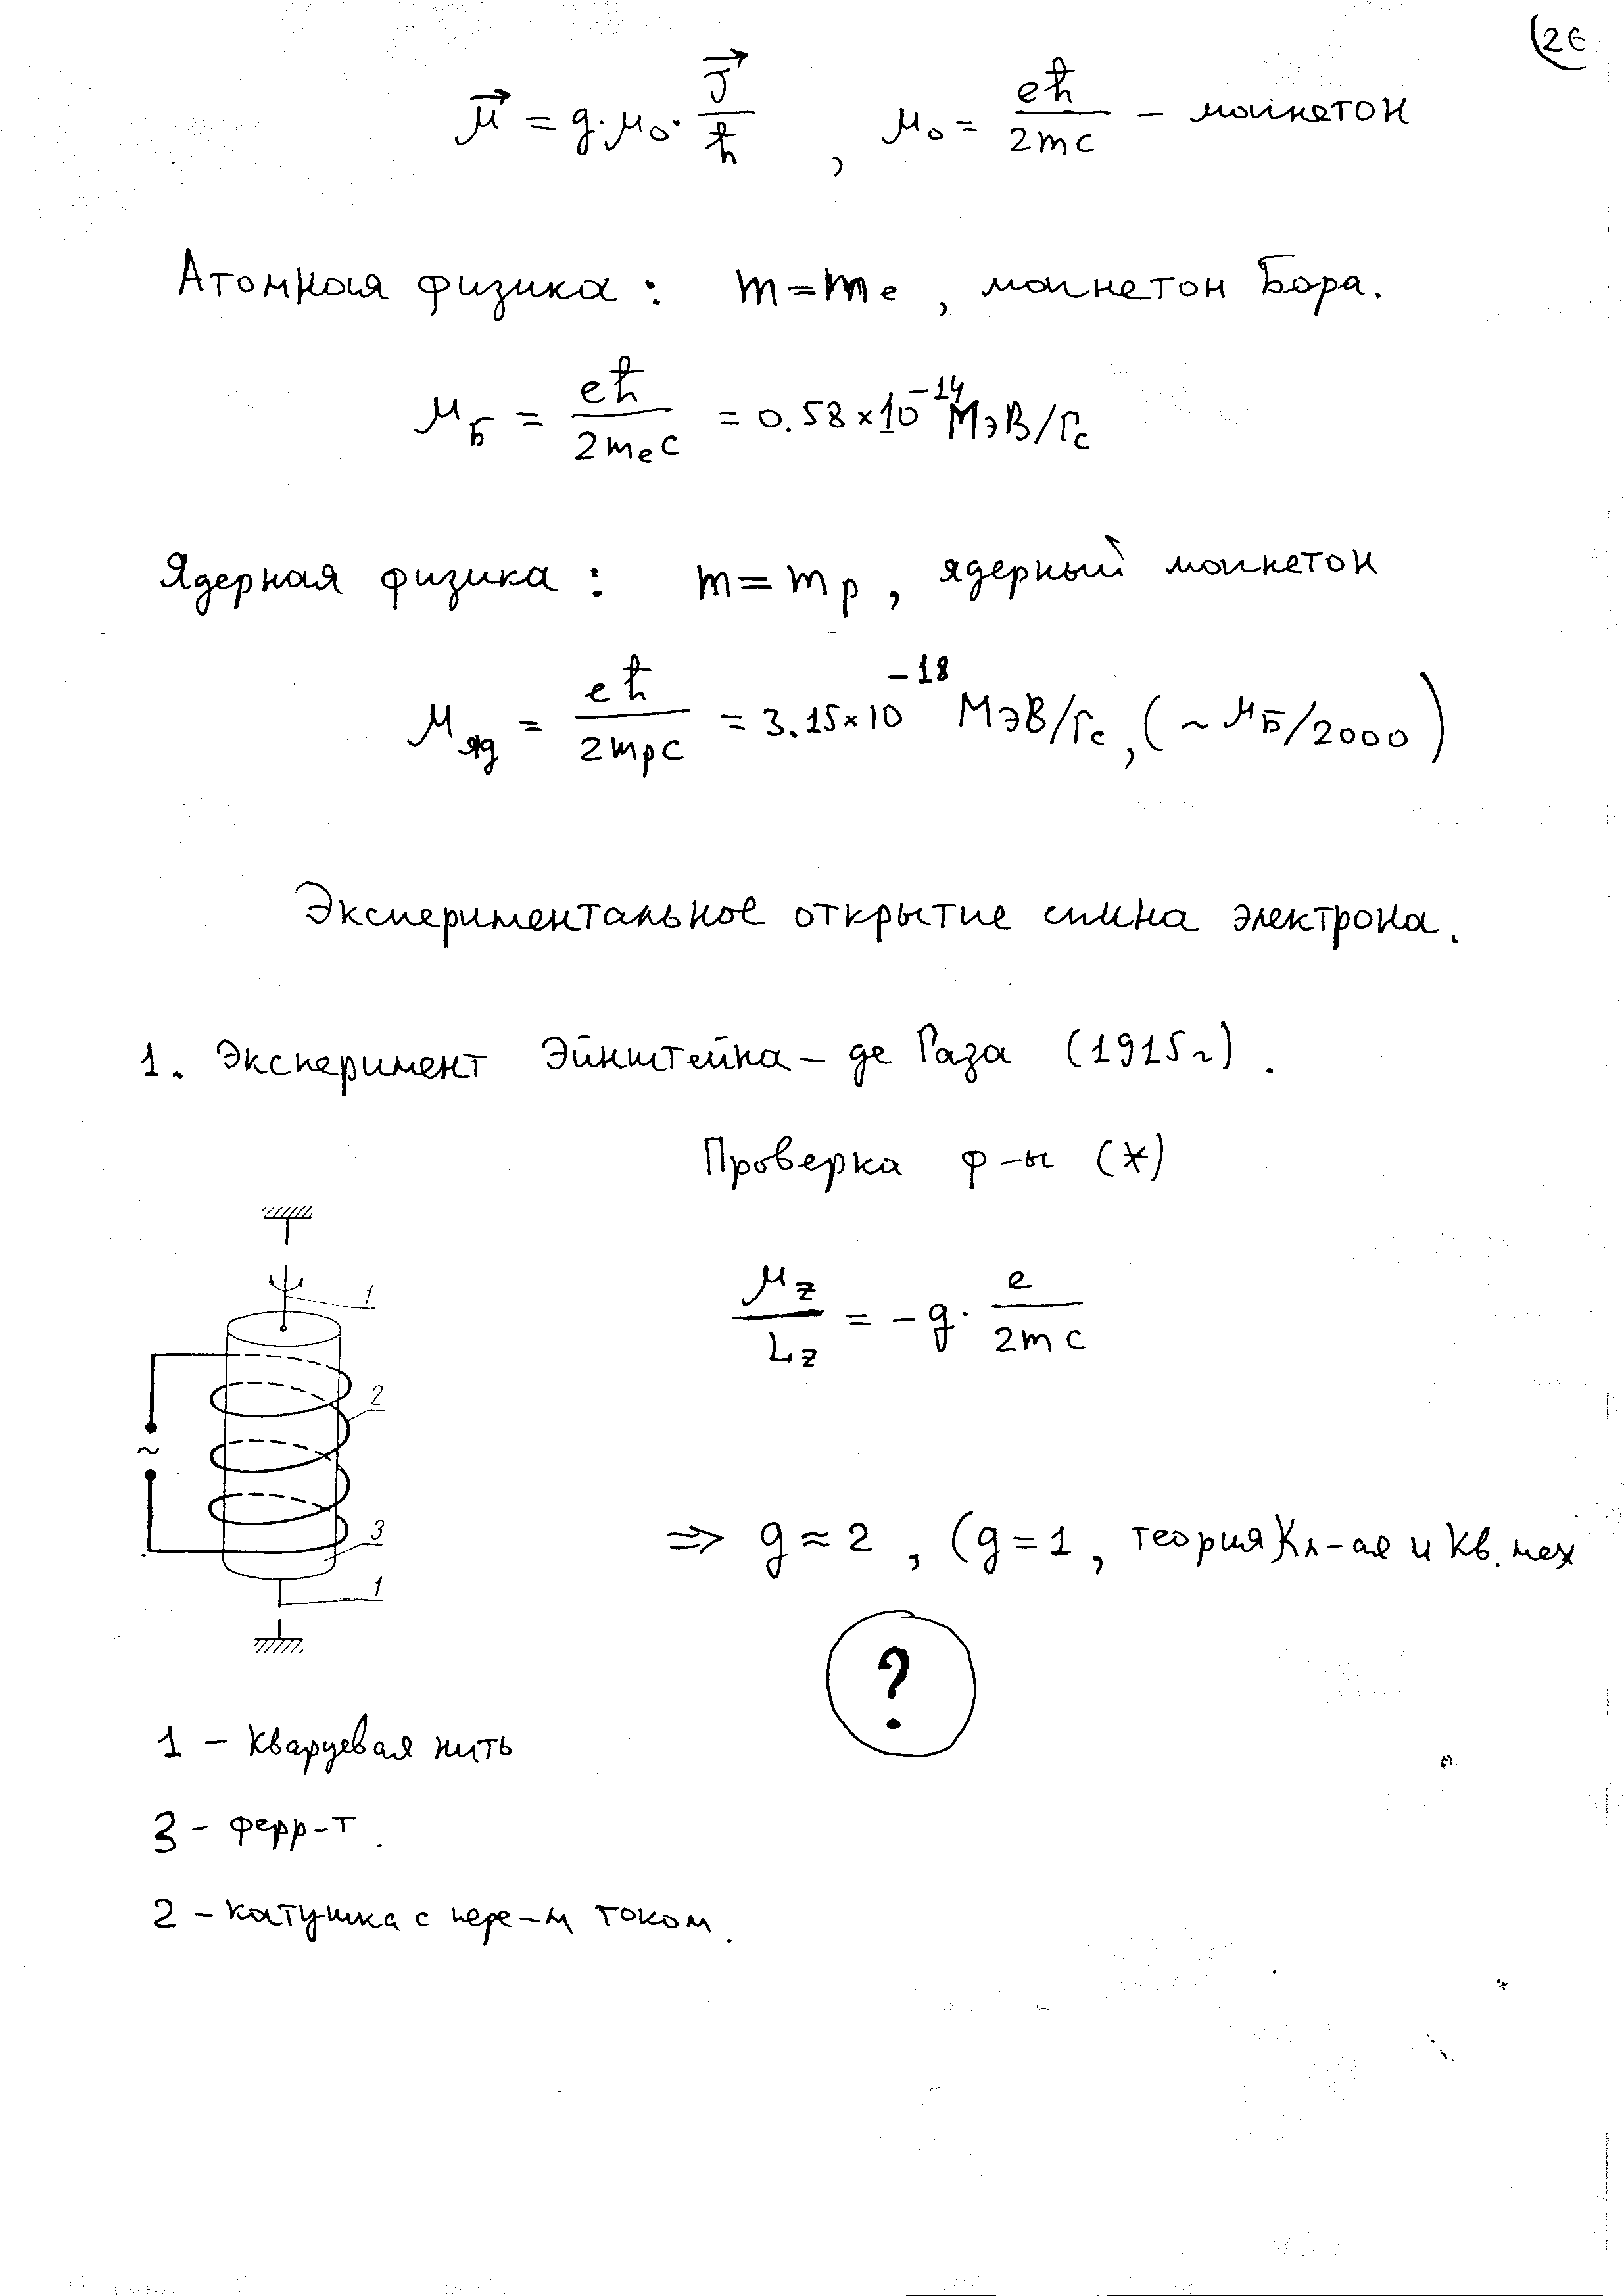 (26
μ⃗ = g·μ₀· J⃗/ħ , μ₀ = eħ/2mc – магнетон
Атомная физика : m=mₑ , магнетон Бора.
μ_Б = eħ/2mₑc = 0.58×10⁻¹⁴ МэВ/Гс
Ядерная физика : m=m_p , ядерный магнетон
μ_яд = eħ/2m_pc = 3.15×10⁻¹⁸ МэВ/Гс , (~μ_Б/2000)
Экспериментальное открытие спина электрона.
1. Эксперимент Эйнштейна – де Гааза (1915г).
Проверка ф-ы (*)
μ_z/L_z = -g· e/2mc
1
2
~
3
1
⇒ g≈2 , (g=1 , теория кл-ая и кв. мех
?
1 – кварцевая нить
3 – ферр-т.
2 – катушка с пере-м током.